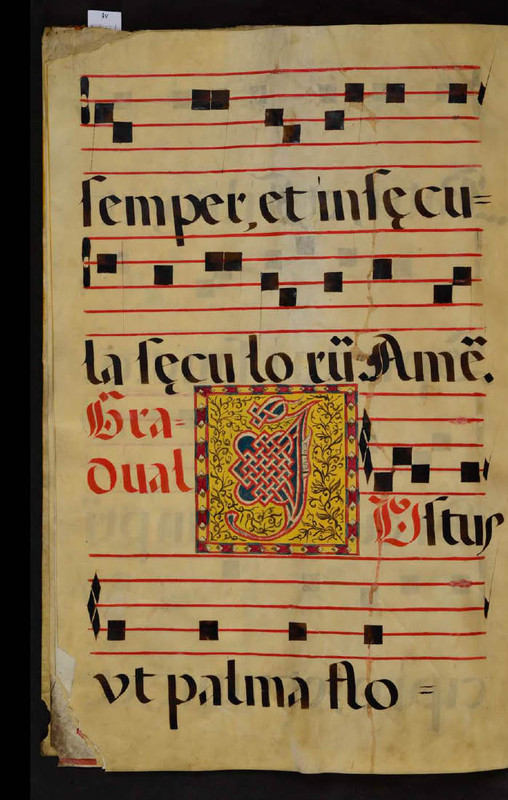 semper, et in sęcu=
la sęculo rū Amē.
Gra=
dual
IVstus
vt palma flo=